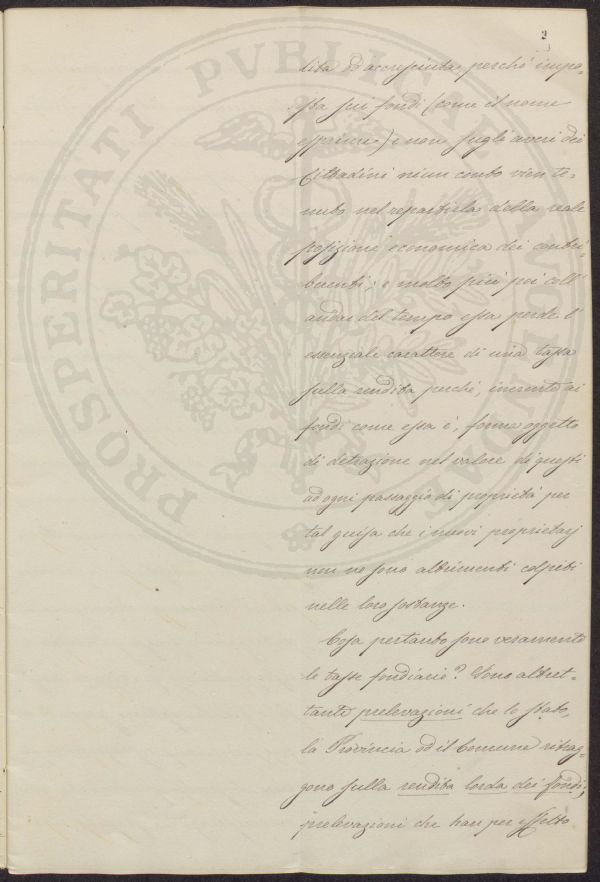 2
dita ed accresciuta, perchè impo-
sta sui fondi (come il nome
esprime) e non sugli averi dei
Cittadini niun conto vien te-
nuto nel repartirla della reale
posizione economica dei contri-
buenti; e molto più poi coll'
andar del tempo essa perde l'
essenziale carattere di una tassa
sulla rendita perchè, inerente ai
fondi come essa è, forma oggetto
di detrazione nel valore di questi
ad ogni passaggio di proprietà per
tal guisa che i nuovi proprietarj
non ne sono altrimenti colpiti
nelle loro sostanze.
Cosa pertanto sono veramente
le tasse fondiarie? Sono altret-
tante prelevazioni che lo Stato,
la Provincia ed il Comune ritrag-
gono sulla rendita lorda dei fondi;
prelevazioni che han per effetto
PROSPERITATI PVBLICAE AVGENDAE